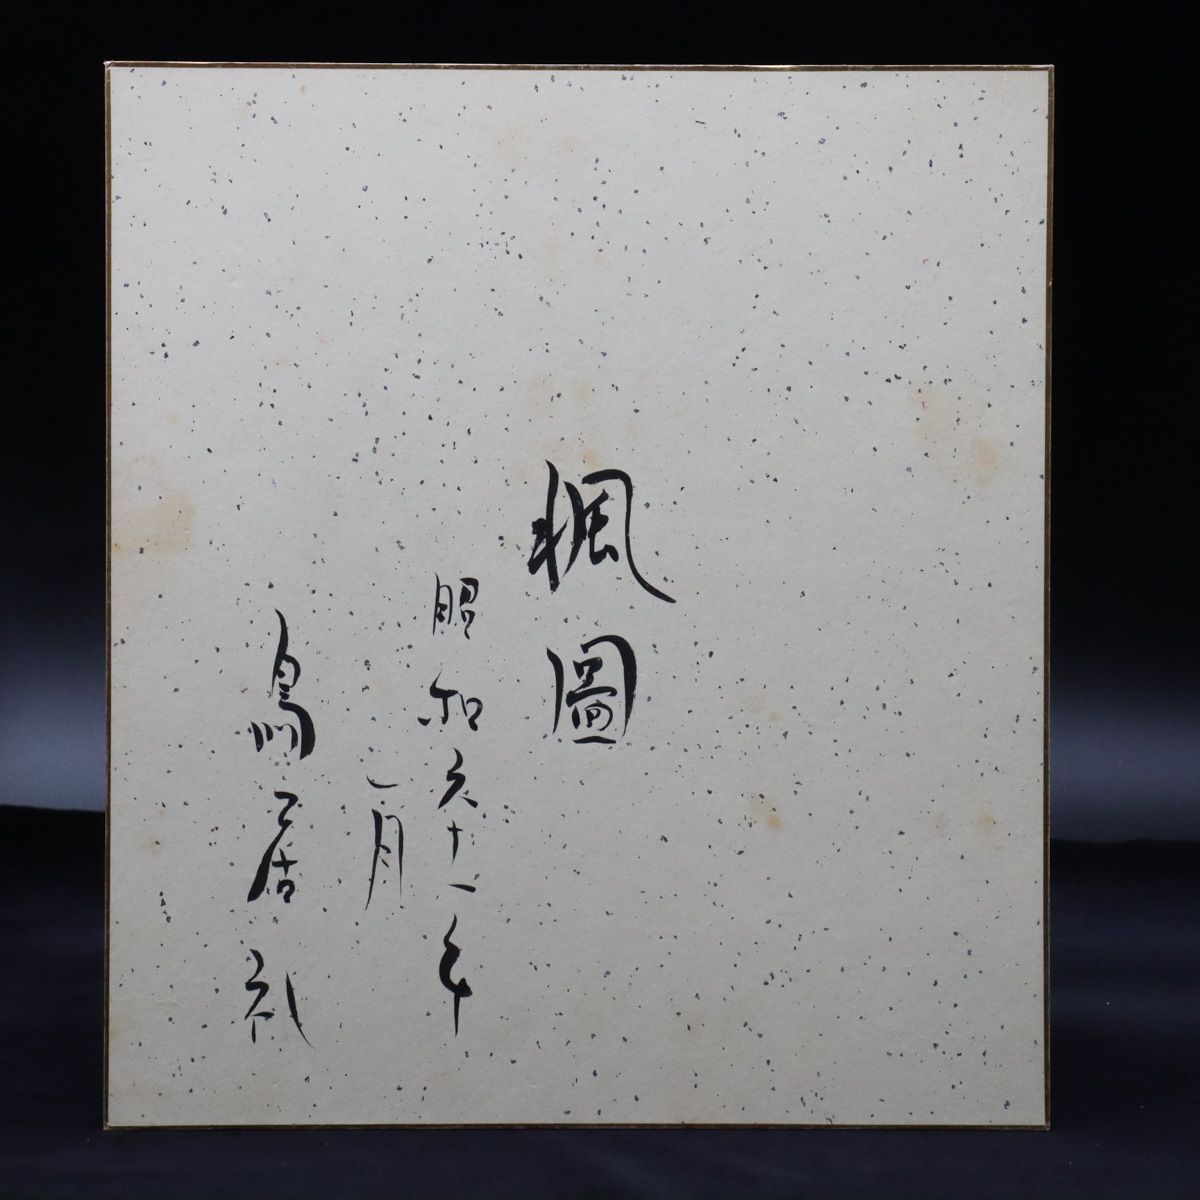 楓圖
昭和六十一年
一月
鳥居礼